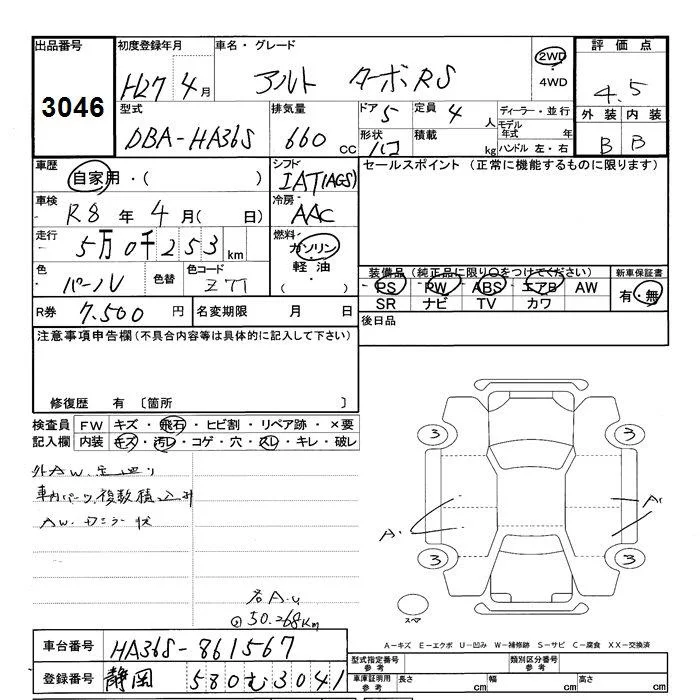 出品番号 初度登録年月 車名・グレード 評価点
3046 H27年4月 アルト ターボRS 2WD 4WD 4.5
型式 排気量 ドア 5 定員 4人 ディーラー・並行 外装 内装
DBA-HA36S 660cc 形状 積載 kg モデル年式 年 ハンドル 左・右 B B
車歴 自家用・( ) シフト IAT(AGS) セールスポイント (正常に機能するものに限ります)
車検 R8年4月( 日) 冷房 AAC
走行 5万0千253km 燃料 ガソリン 軽油 ( )
色 パール 色替 色コード Z7T 装備品(純正品に限り○をつけてください) 新車保証書
PS PW ABS エアB AW 有・無
R券 7.500円 名変期限 月 日 SR ナビ TV カワ
注意事項申告欄(不具合内容等は具体的に記入して下さい) 後日品
修復歴 有 〔箇所 〕
検査員 FW キズ・飛石・ヒビ割・リペア跡・×要
記入欄 内装 キズ・汚レ・コゲ・穴・スレ・キレ・破レ
外AW.
車内パーツ複数積込み
AW.
各A.U
50.268Km
3 3
A. A1
3 3
スペア
A-キズ E-エクボ U-凹み W-補修跡 S-サビ C-腐食 XX-交換済
車台番号 HA36S-861567 型式指定番号 参考 類別区分番号 参考
登録番号 静岡 580む3041 車庫証明用 参考 長さ cm 幅 cm 高さ cm